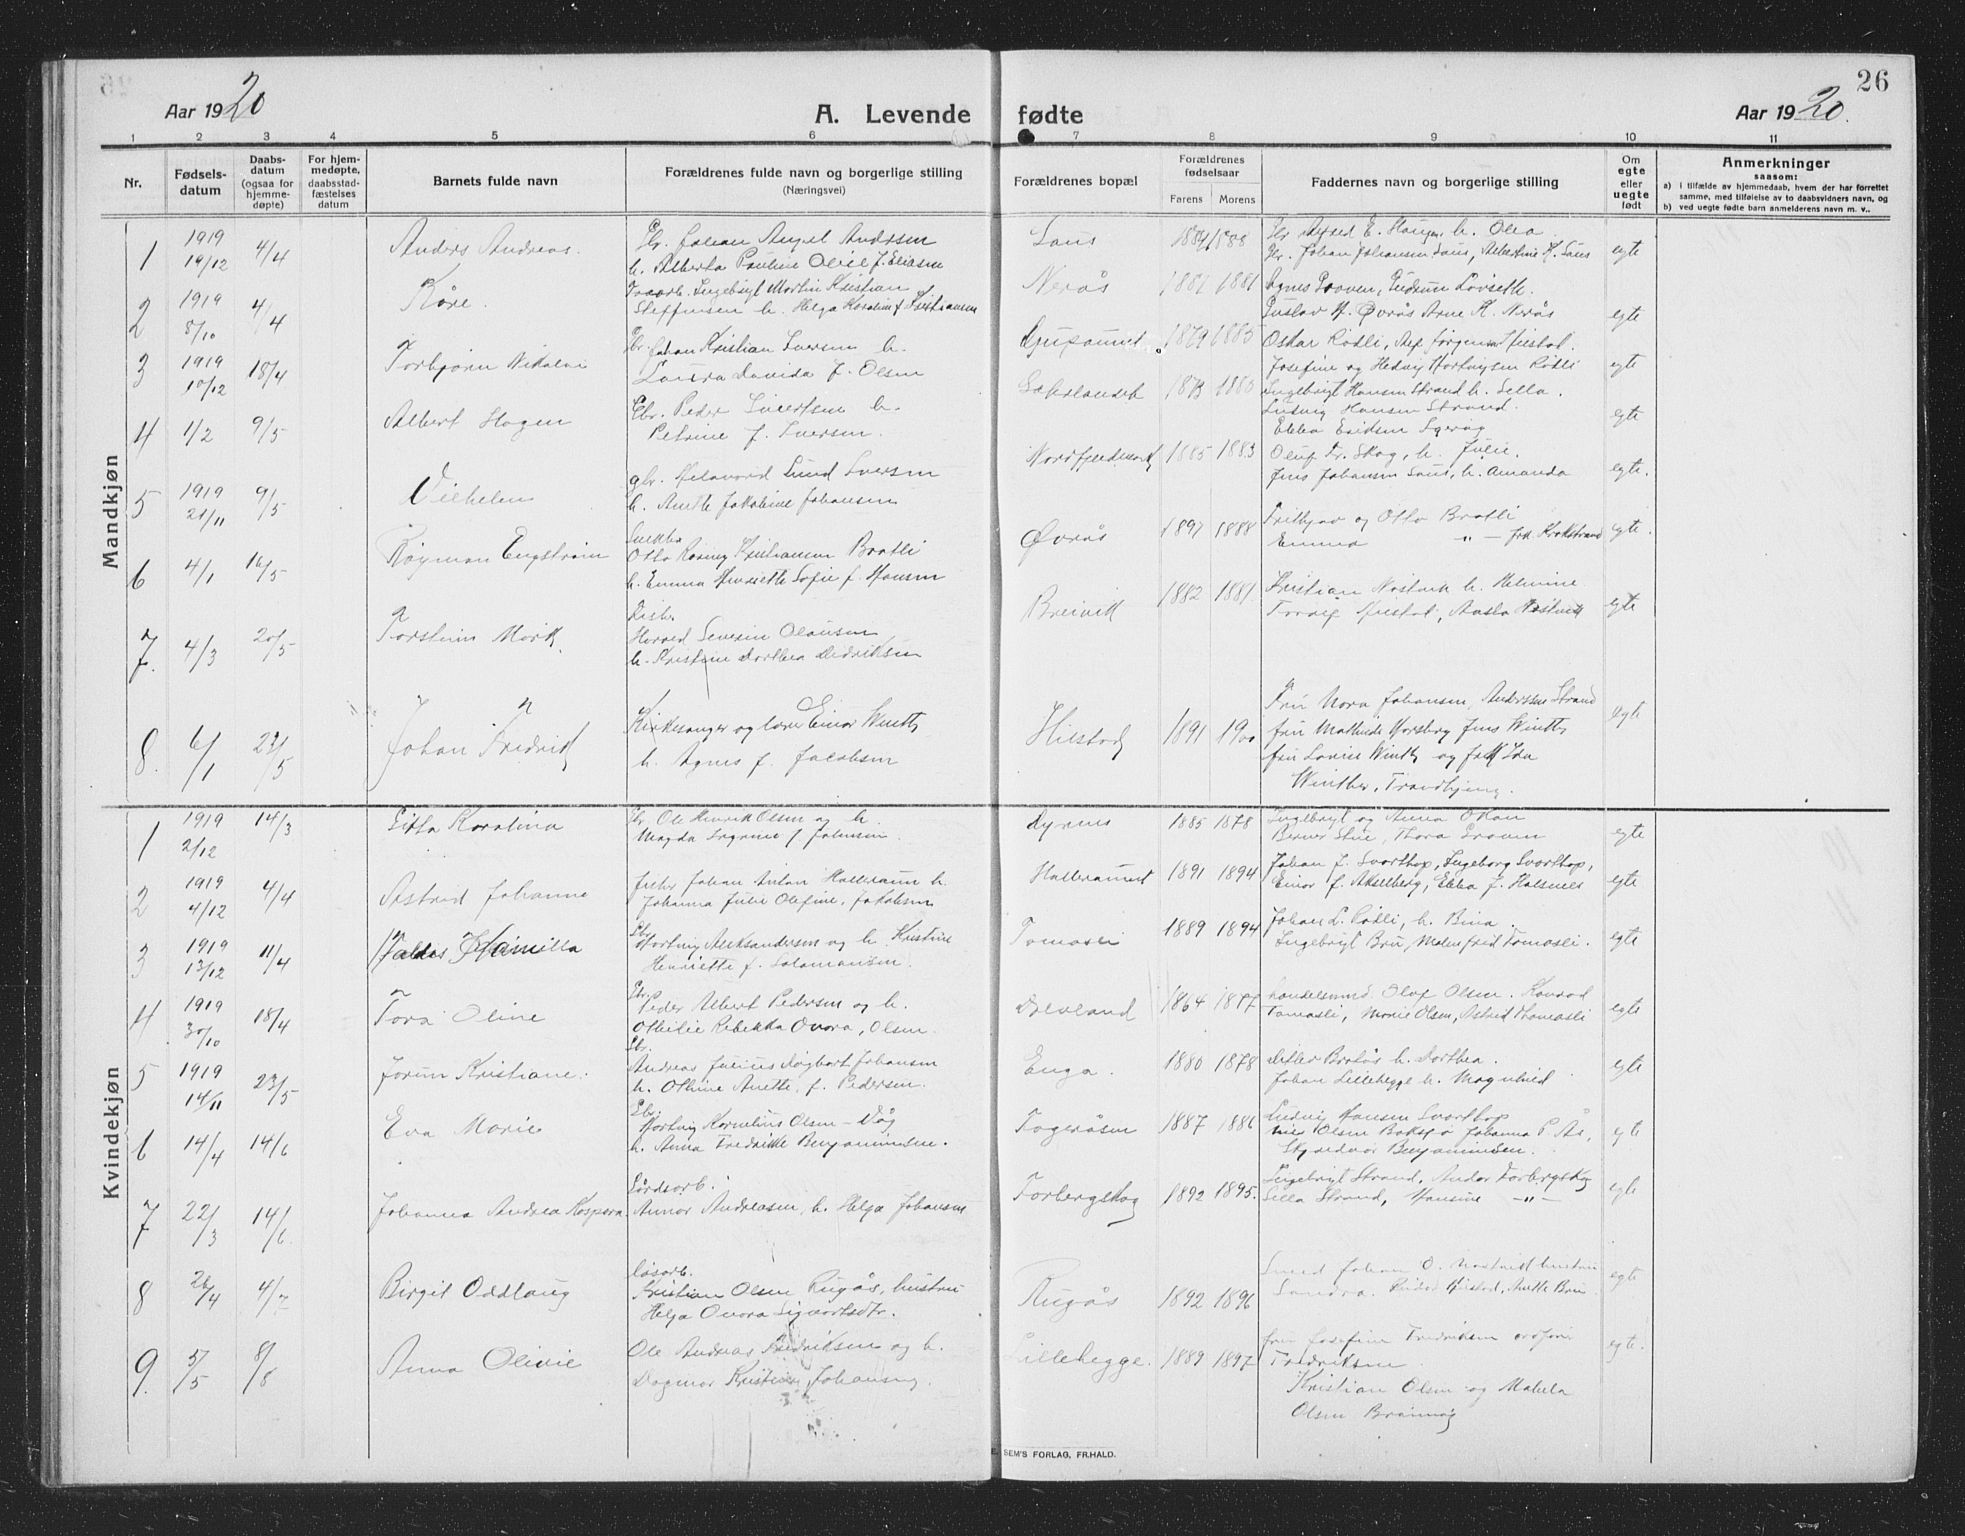 26
Aar 1920
A. Levende fødte
Aar 1920.
1 2 3 4 5 6 7 8 9 10 11
Nr.
Fødsels-
datum
Daabs-
datum
(ogsaa for
hjemme-
døpte)
For hjem-
medøpte,
daabsstad-
fæstelses
datum
Barnets fulde navn
Forældrenes fulde navn og borgerlige stilling
(Næringsvei)
Forældrenes bopæl
Forældrenes
fødselsaar
Farens Morens
Faddernes navn og borgerlige stilling
Om
egte
eller
uegte
født
Anmerkninger
saasom:
a) i tilfælde av hjemmedaab, hvem der har forrettet
samme, med tilføielse av to daabsvidners navn, og
b) ved uegte fødte barn anmelderens navn m. v..
Mandkjøn
1 1919 19/12 4/4 Anders Andreas.
Johan Angel Andersen
h. Alberta Pauline
Saus 1884 1888
Johan Johansen Saus, Albertine K. Saus
egte
2 1919 8/10 4/4 Kåre.
Ingebrigt Martin Kristian
Steffensen h. Helga Karoline f. Kristiansen
Nerås 1881 1881
Agnes Proven, Gudrun Løvseth.
Gustav Øverås Arne K. Nerås
egte
3 1919 10/12 18/4 Torbjørn Nikolai
Johan Kristian Iversen h.
Laura Davida f. Olsen
Djupsundet 1879 1885
Oskar Rødli,
Josefine og Hedvig Hartvigsen Rødli
egte
4 1/2 9/5 Albert Hagen
Gbr. Peder Sivertsen h.
Petrine f. Iversen.
1873 1880
Ingebrigt Hansen Strand h. Silla.
Ludvig Hansen Strand.
Ebba
egte
5 1919 21/11 9/5 Vilhelm
gbr. Lund Iversen
h. Anette Jakobine Johansen
1885 1883
Oluf Fr. Skog, h. Julie.
Jens Johansen Saus, h. Amanda
egte.
6 4/1 16/5 Røyman Engstrøm
Otto Kristiansen Bratli
h. Emma Henriette Sofie f. Hansen
Øverås 1897 1888
og Otto Bratli
Emma „ — frk Krokstrand
egte.
7. 4/3 20/5 Torstein Mørk
Fisker
Harald Severin Olausen
h. Kristine Dorthea Didriksen
Breivik 1882 1881.
Kristian h. Helmine.
egte
8. 6/1 23/5 Johan Fredrik
Kirkesanger og lærer Einar Winther
h. Agnes f. Jacobsen
Hilstad 1891 1900
Fru Nora Johansen, Andersen Strand
fru Mathilde Horsberg Jens Winther
fru Lovise Winther og frk Ida
Winther, Trondhjem.
egte
Kvindekjøn
1 1919 2/12 14/3 Gitta Karolina
Gbr Ole Henrik Olsen og h.
Magda f. Johansen.
Dyrnes 1885 1878
Ingebrigt og Anna
Berner Stue, Thora Proven
egte
2 1919 4/12 4/4 Astrid Johanne
fisker Johan Anton Hallersund h.
Johanna Julie Olefine, Jakobsen
Hallersundet 1891 1894
Johan J. Svorthop, Ingeborg Svorthop,
Einar f. Akselberg, Ebba J. Halsnes
egte
3 1919 13/12 11/4 Valdis Kamilla
Gbr Hartvig Aleksandersen og h. Kristine
Henriette f. Salamonsen.
Tomasli 1889 1894
Johan L. Rødli, h. Bina.
Ingebrigt Bru, Malenfrid Tomasli.
egte
4 1919 30/10 18/4 Tora Oline
Gbr. Peder Albert Pedersen og h.
Othilie Rebekka Ovora, Olsen.
1864 1877
handelsmand. Olaf Olsen. Konrad
Tomasli, Marie Olsen, Astrid Thomasli
egte
5 1919 14/11 23/5 Jorun Kristiane.
Gbr. Andreas Julius Dagbart Johansen
h. Othine Anette. f. Pedersen.
Enga. 1880 1878
Ditlev Bratås h. Dorthea.
Johan Lillehegge h. Magnhild
egte
6 14/4 14/6 Eva Marie
Gbr. Hartvig Kornelius Olsen - Våg
h. Anna Fredrikke Benjaminsen.
Fageråsen 1887 1886
Ludvig Hansen Svorthop
Olsen Johanna P. Ås,
Benjaminsen.
egte
7 22/3 14/6. Johanna Andrea Kaspara.
Annar Andreasen, h. Helga Johansen
Torbergskog 1892 1895.
Ingebrigt Strand, Torbergskog
Silla Strand, Hansine —„—
egte
8 26/4 4/7 Birgit Oddlaug
løsarb. Kristian Olsen Rugås, hustru
Helga Ovora Sigvartsdtr.
Rugås 1892 1896
Johan O.
Sandra. Hilstad, Anette Bru.
egte
9. 5/5 8/8 Anna Olivie
Ole Andreas Fredriksen og h.
Dagmar Kristine Johansen.
Lillehegge. 1889 1897
fru Josefine Fredriksen
Fredriksen.
Kristian Olsen og Makela
Olsen
egte.
SEM'S FORLAG, FR.HALD.